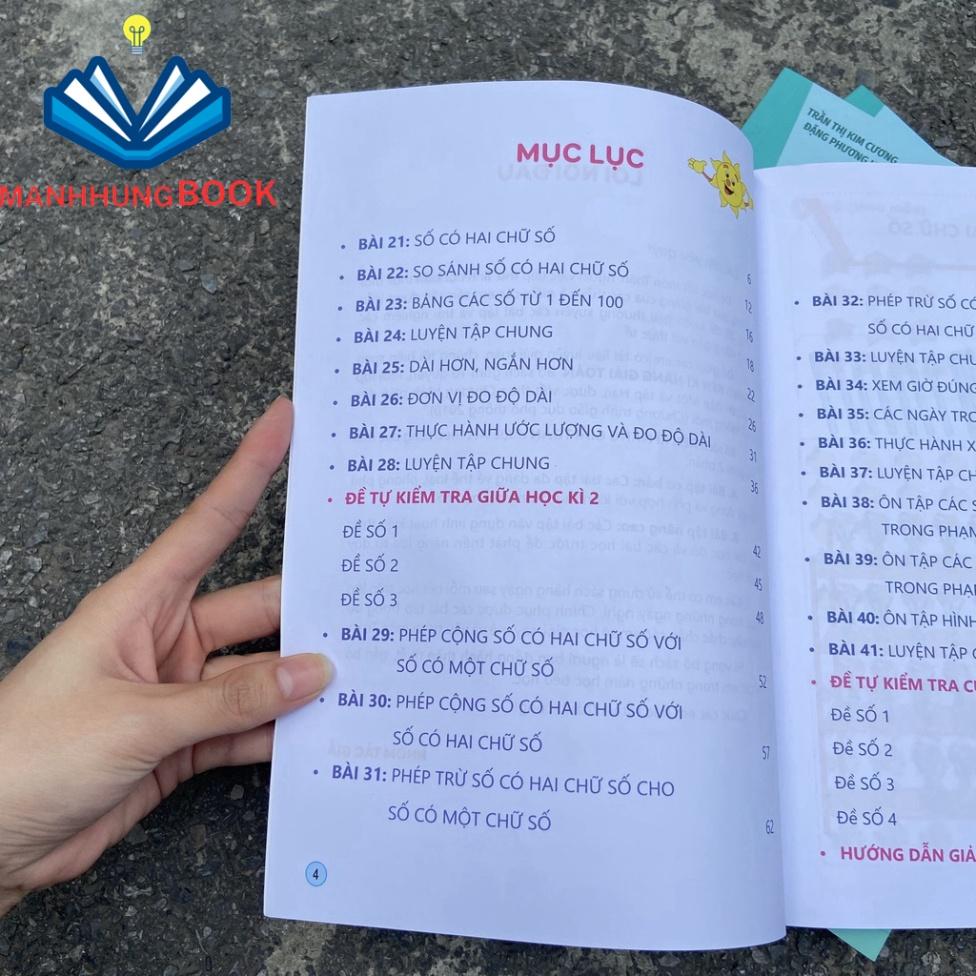 MANHHUNGBOOK
TRẦN THỊ KIM CƯƠNG
ĐẶNG PHƯƠNG
MỤC LỤC
• BÀI 21: SỐ CÓ HAI CHỮ SỐ 6
• BÀI 22: SO SÁNH SỐ CÓ HAI CHỮ SỐ 12
• BÀI 23: BẢNG CÁC SỐ TỪ 1 ĐẾN 100 16
• BÀI 24: LUYỆN TẬP CHUNG 18
• BÀI 25: DÀI HƠN, NGẮN HƠN 22
• BÀI 26: ĐƠN VỊ ĐO ĐỘ DÀI 26
• BÀI 27: THỰC HÀNH ƯỚC LƯỢNG VÀ ĐO ĐỘ DÀI 31
• BÀI 28: LUYỆN TẬP CHUNG 36
• ĐỀ TỰ KIỂM TRA GIỮA HỌC KÌ 2
ĐỀ SỐ 1 42
ĐỀ SỐ 2 45
ĐỀ SỐ 3 48
• BÀI 29: PHÉP CỘNG SỐ CÓ HAI CHỮ SỐ VỚI
SỐ CÓ MỘT CHỮ SỐ 52
• BÀI 30: PHÉP CỘNG SỐ CÓ HAI CHỮ SỐ VỚI
SỐ CÓ HAI CHỮ SỐ 57
• BÀI 31: PHÉP TRỪ SỐ CÓ HAI CHỮ SỐ CHO
SỐ CÓ MỘT CHỮ SỐ 62
4
• BÀI 32: PHÉP TRỪ SỐ CÓ
SỐ CÓ HAI CHỮ
• BÀI 33: LUYỆN TẬP
• BÀI 34: XEM GIỜ ĐÚNG
• BÀI 35: CÁC NGÀY
• BÀI 36: THỰC HÀNH
• BÀI 37: LUYỆN TẬP
• BÀI 38: ÔN TẬP CÁC
TRONG
• BÀI 39: ÔN TẬP CÁC
TRONG
• BÀI 40: ÔN TẬP HÌNH
• BÀI 41: LUYỆN TẬP
• ĐỀ TỰ KIỂM TRA
Đề SỐ 1
Đề SỐ 2
Đề SỐ 3
Đề SỐ 4
• HƯỚNG DẪN